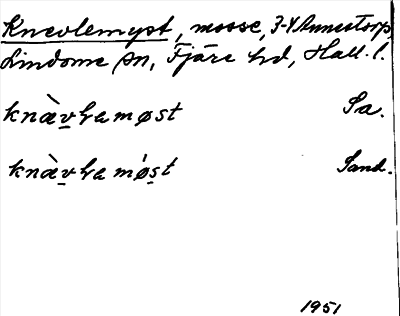 Knevlemyst, mosse, 3-4 Annestorp,
Lindome sn, Fjäre hd, Hall. l.
knæ̀vḷamøst Sa.
knæ̀vḷamøst Sand.
1951